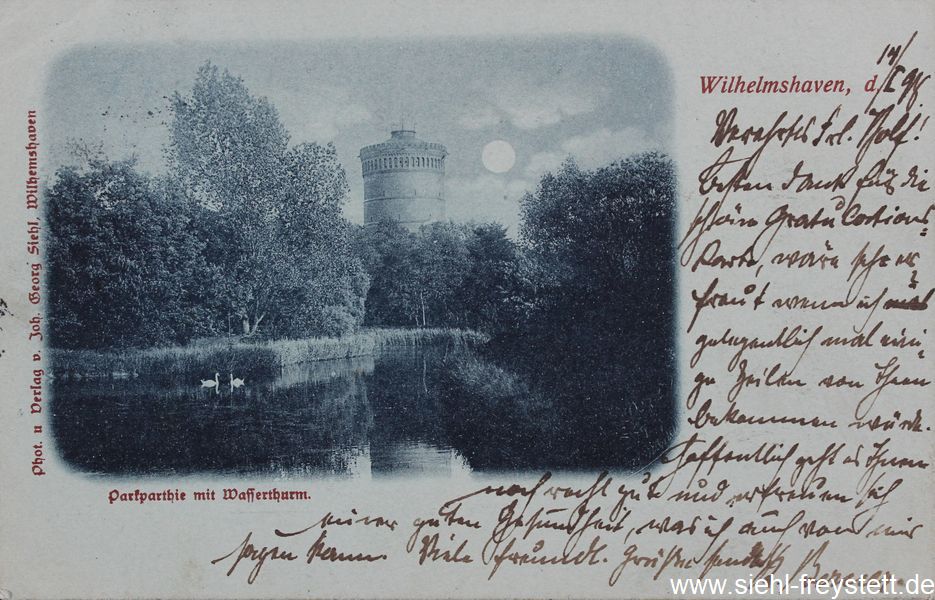 Wilhelmshaven, d. 14/I 98
Verehrtes Frl. Wolf!
besten Dank für die
schöne Gratulations-
karte, wäre sehr er-
freut wenn ich
gelegentlich mal eini-
ge Zeilen von Ihnen
bekommen würde.
Hoffentlich geht es Ihnen
noch recht gut und erfreuen sich
einer guten Gesundheit, was ich auch von mir
sagen kann. Viele freundl. Grüße sendet
Phot. u Verlag v. Joh. Georg Siehl, Wilhemshaven
Parkparthie mit Wasserthurm.
www.siehl-freystett.de